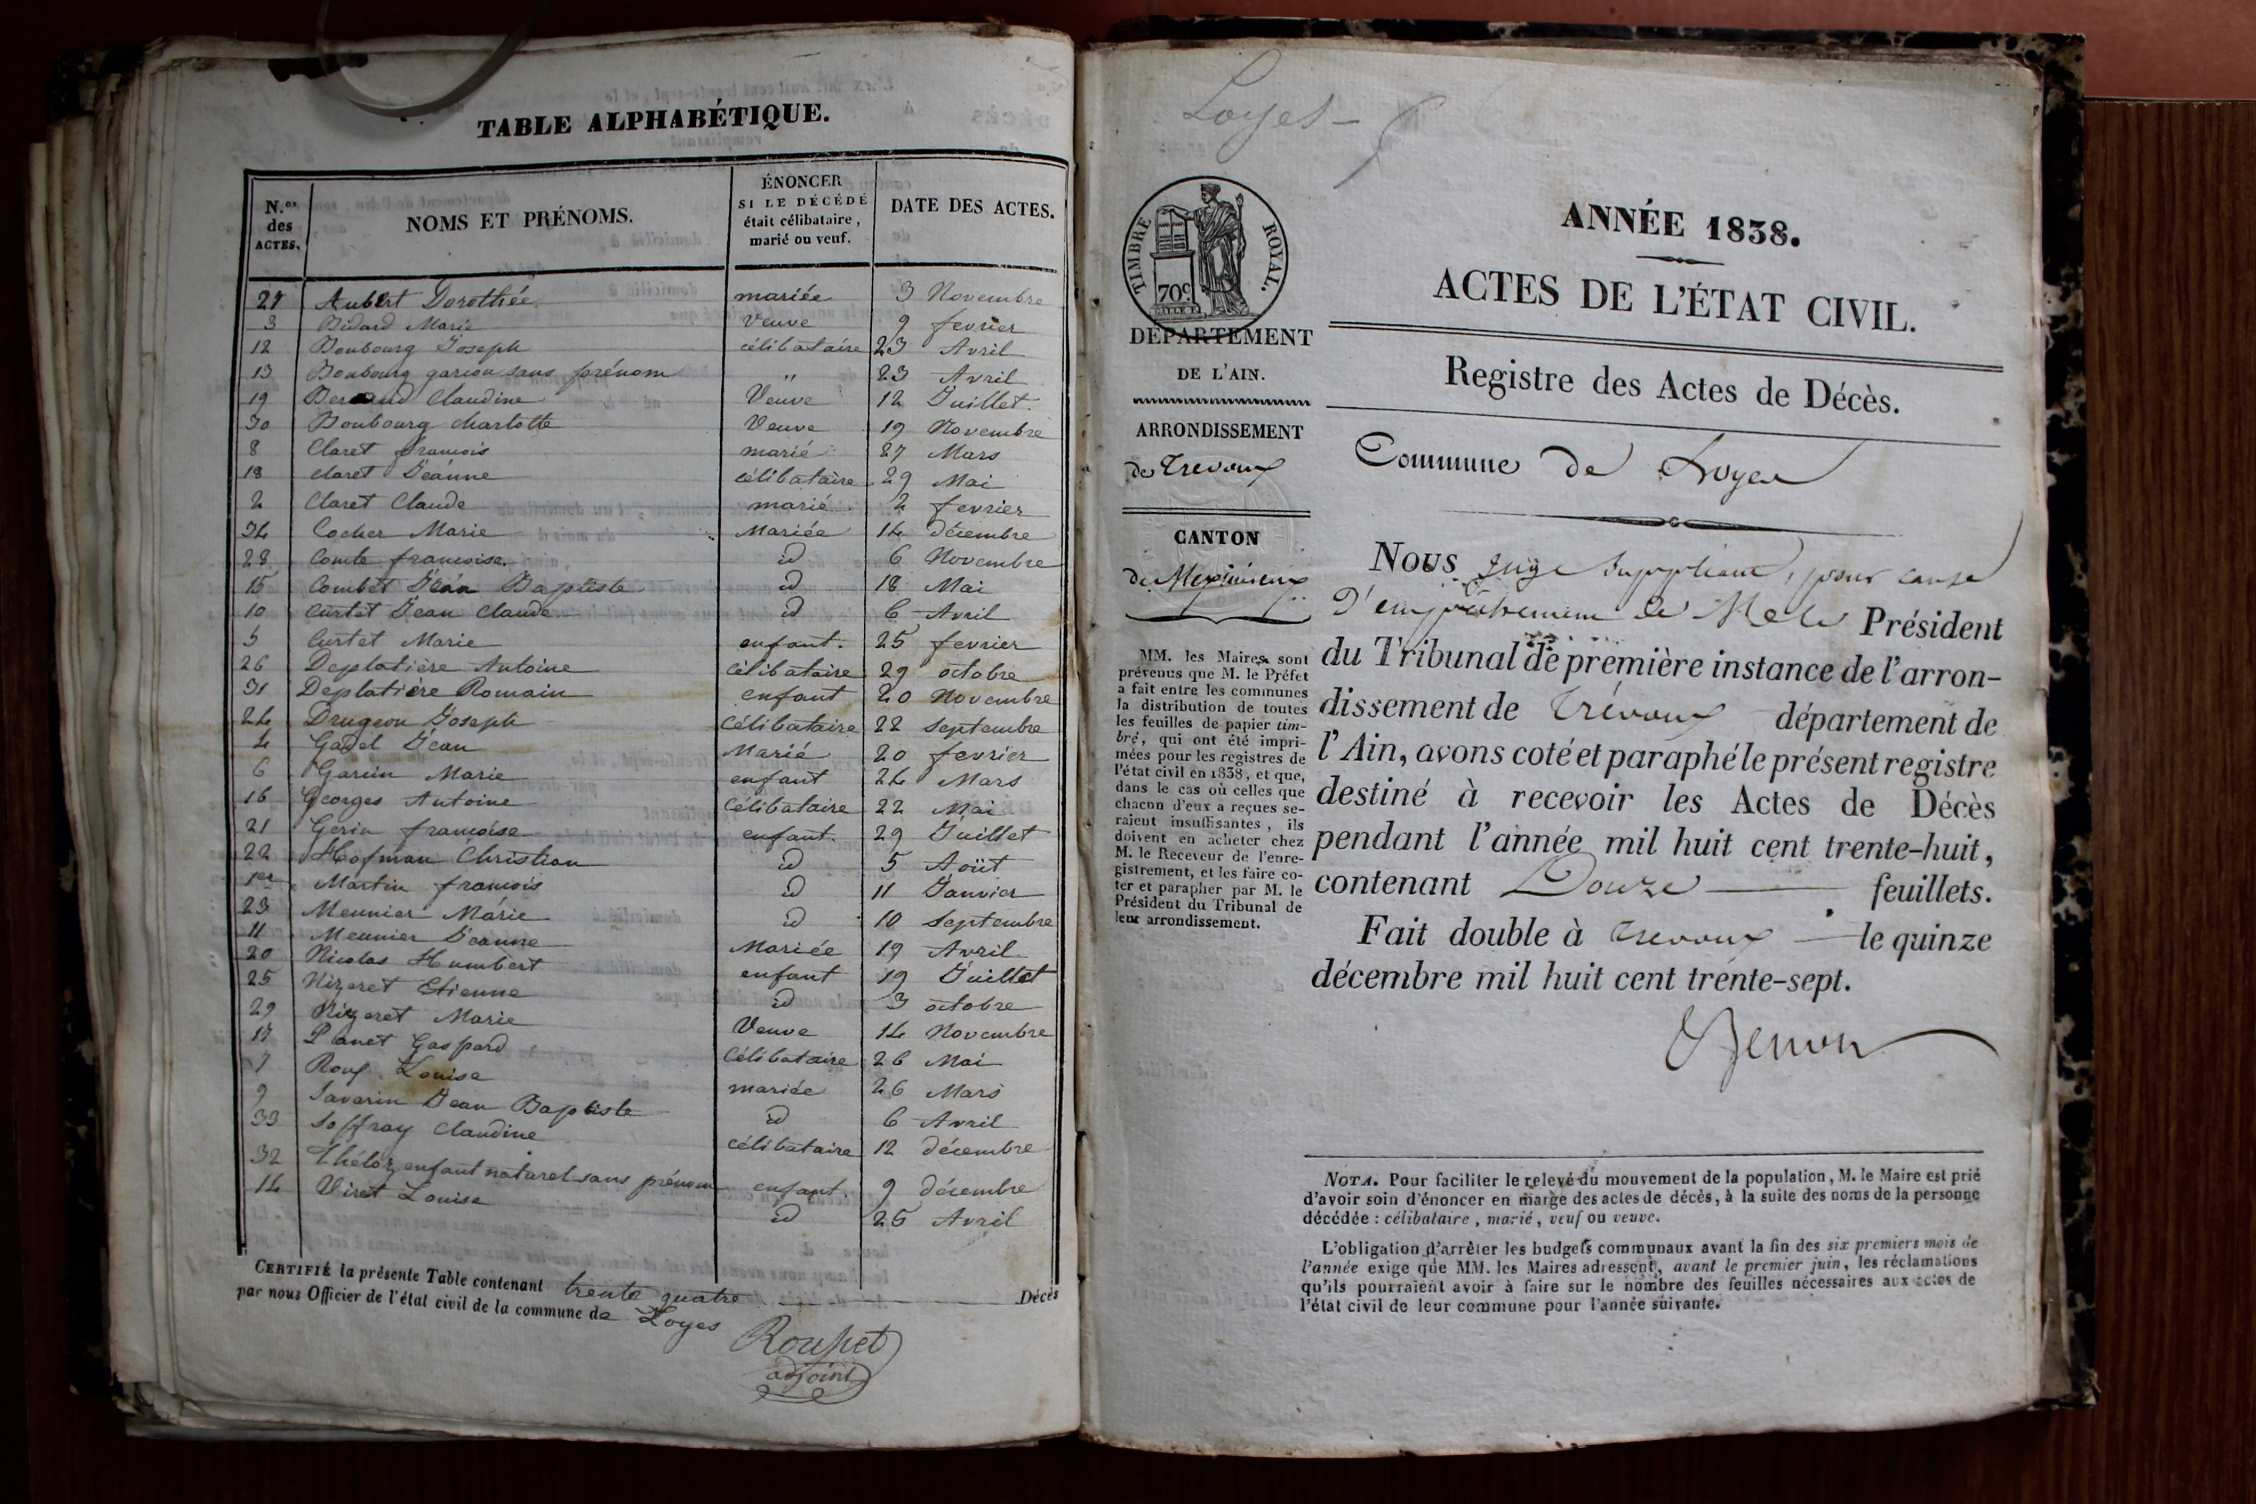 TABLE ALPHABÉTIQUE.
N.os des ACTES. NOMS ET PRÉNOMS. ÉNONCER SI LE DÉCÉDÉ était célibataire, marié ou veuf. DATE DES ACTES.
27 Aubert Dorothée mariée 3 Novembre
3 Bidard Marie Veuve 9 fevrier
12 Boubourg Joseph célibataire 23 Avril
13 Boubourg garcon sans prénom " 23 Avril
19 Claudine Veuve 12 Juillet
30 Boubourg charlotte Veuve 19 Novembre
8 Claret francois marié 27 Mars
18 claret Jeanne célibataire 29 Mai
2 Claret Claude marié 2 fevrier
34 Cocher Marie Mariée 14 décembre
28 Comte francoise id 6 Novembre
15 Combet Jean Baptiste id 18 Mai
10 Curtet Jean claude id 6 Avril
5 Curtet Marie enfant. 25 fevrier
26 Deplatière Antoine célibataire 29 octobre
31 Deplatière Romain enfant 20 Novembre
24 Drugeon Joseph Célibataire 22 septembre
4 Gadel Jean Marié 20 fevrier
6 Garcin Marie enfant 24 Mars
16 Georges Antoine Célibataire 22 Mai
21 Gerin francoise enfant 29 Juillet
22 Hofman Christian id 5 Août
1er Martin francois id 11 Janvier
23 Meunier Marie id 10 Septembre
11 Meunier Jeanne Mariée 19 Avril
20 Nicolas Humbert enfant 19 Juillet
25 Nizeret Etienne id 3 octobre
29 Nizeret Marie Veuve 14 Novembre
17 Planet Gaspard Célibataire 26 Mai
7 Roux Louise mariée 26 Mars
9 Savarin Jean Baptiste id 6 Avril
33 Soffray Claudine célibataire 12 décembre
32 Théloz enfant naturel sans prénom enfant 9 décembre
14 Viret Louise id 25 Avril
CERTIFIÉ la présente Table contenant trente quatre Décès
par nous Officier de l'état civil de la commune de Loyes
Roupet
adjoint
Loyes
TIMBRE ROYAL.
70c
DEPARTEMENT
DE L'AIN.
ARRONDISSEMENT
de Trevoux
CANTON
de Meximieux
MM. les Maires sont
prévenus que M. le Préfet
a fait entre les communes
la distribution de toutes
les feuilles de papier tim-
bré, qui ont été impri-
mées pour les registres de
l'état civil en 1838, et que,
dans le cas où celles que
chacun d'eux a reçues se-
raient insuffisantes, ils
doivent en acheter chez
M. le Receveur de l'enre-
gistrement, et les faire co-
ter et parapher par M. le
Président du Tribunal de
leur arrondissement.
ANNÉE 1838.
ACTES DE L'ÉTAT CIVIL.
Registre des Actes de Décès.
Commune de Loyes
Nous juge suppléant, pour cause
d'empêchement de M. le Président
du Tribunal de première instance de l'arron-
dissement de Trévoux département de
l'Ain, avons coté et paraphé le présent registre
destiné à recevoir les Actes de Décès
pendant l'année mil huit cent trente-huit,
contenant Douze feuillets.
Fait double à Trevoux le quinze
décembre mil huit cent trente-sept.
NOTA. Pour faciliter le relevé du mouvement de la population, M. le Maire est prié
d'avoir soin d'énoncer en marge des actes de décès, à la suite des noms de la personne
décédée : célibataire, marié, veuf ou veuve.
L'obligation d'arrêter les budgets communaux avant la fin des six premiers mois de
l'année exige que MM. les Maires adressent, avant le premier juin, les réclamations
qu'ils pourraient avoir à faire sur le nombre des feuilles nécessaires aux actes de
l'état civil de leur commune pour l'année suivante.